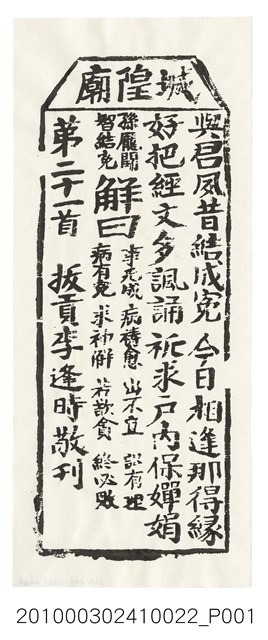 城隍廟
與君夙昔結成寃 今日相逢那得緣
好把經文多諷誦 祈求戶內保嬋娟
孫龐鬪智結寃
解曰
事先成 病禱愈 出不立 訟有理
病有寃 求神解 若欺貪 終必敗
第二十一首 拔貢李逢時敬刊
201000302410022_P001